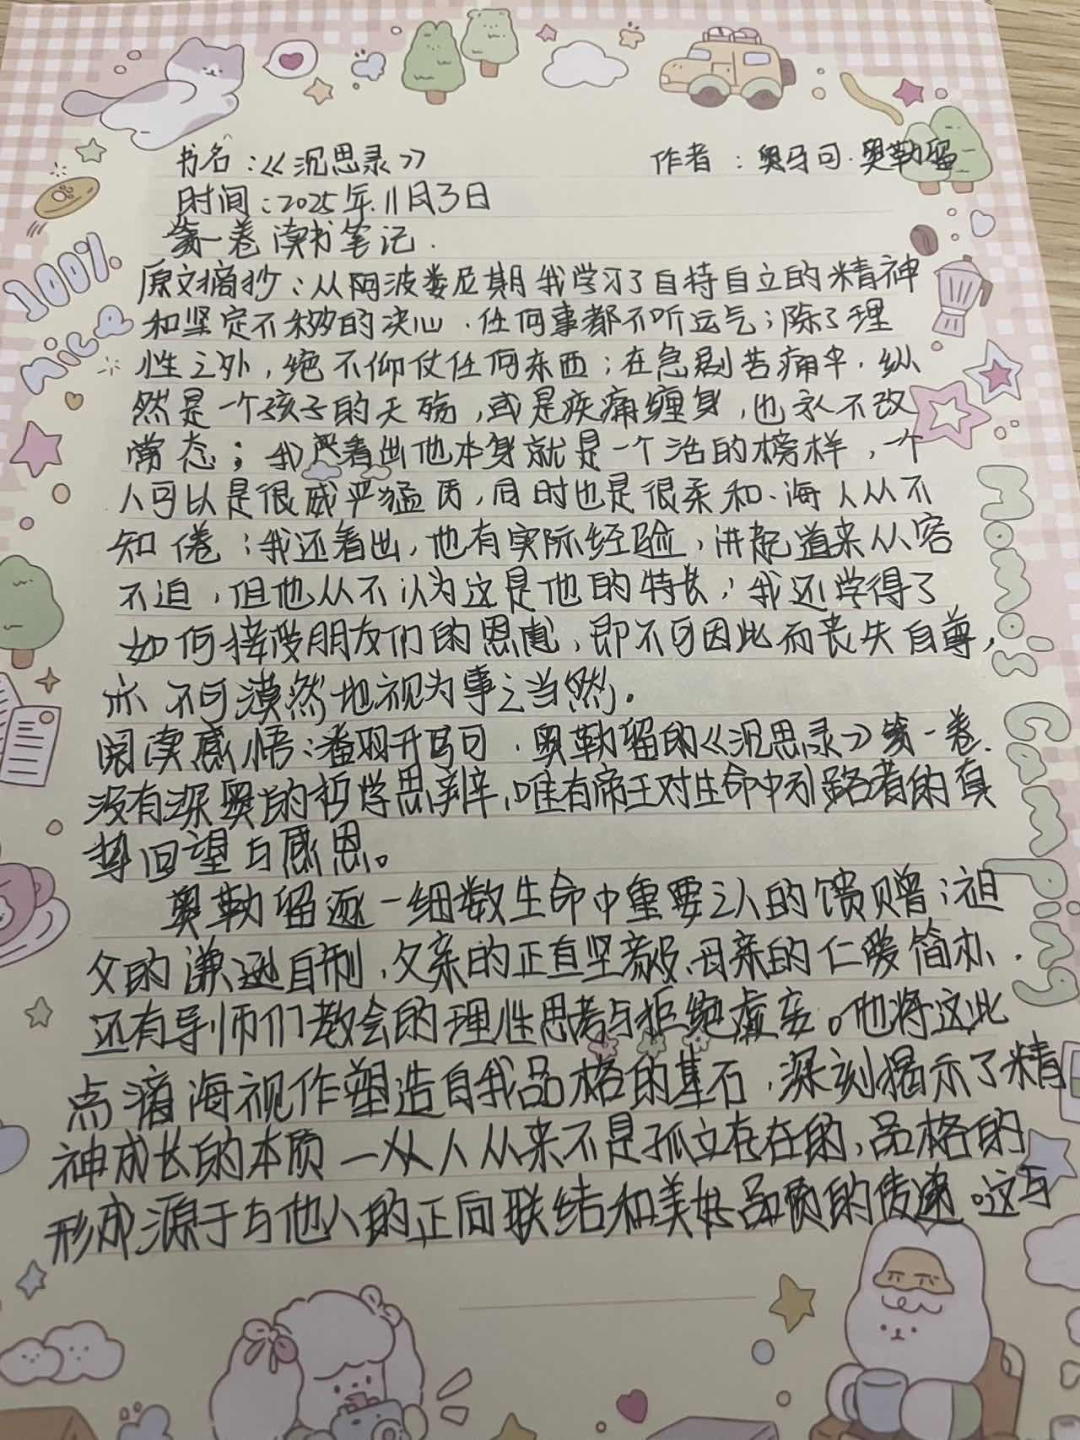 书名:《沉思录》 作者:奥马可·奥勒留
时间:2025年11月3日
第一卷 读书笔记.
原文摘抄:从阿波娄尼期我学习了自持自立的精神
和坚定不移的决心.任何事都不听运气;除了理
性之外,绝不仰仗任何东西;在急剧苦痛中.纵
然是一个孩子的夭殇,或是疾痛缠身,也永不改
常态;我 看出他本身就是一个活的榜样,一个
人可以是很威严猛厉,同时也是很柔和.诲人从不
知倦;我还看出,他有实际经验,讲起道来从容
不迫,但他从不认为这是他的特长;我还学得了
如何接受朋友们的恩惠,即不可因此而丧失自尊,
亦不可漠然地视为事之当然.
阅读感悟:潘翻开马可.奥勒留的《沉思录》第一卷.
没有深奥的哲学思辨,唯有帝王对生命中引路者的真
挚回望与感恩。
奥勒留逐一细数生命中重要之人的馈赠;祖
父的谦逊自制,父亲的正直坚毅,母亲的仁爱简朴.
还有导师们教会的理性思考与拒绝虚妄。他将这此
点滴海视作塑造自我品格的基石,深刻揭示了精
神成长的本质—从人从来不是孤立存在的,品格的
形成源于与他人的正向联结和美好品质的传递。这与
100% Nice
Momo's Camping